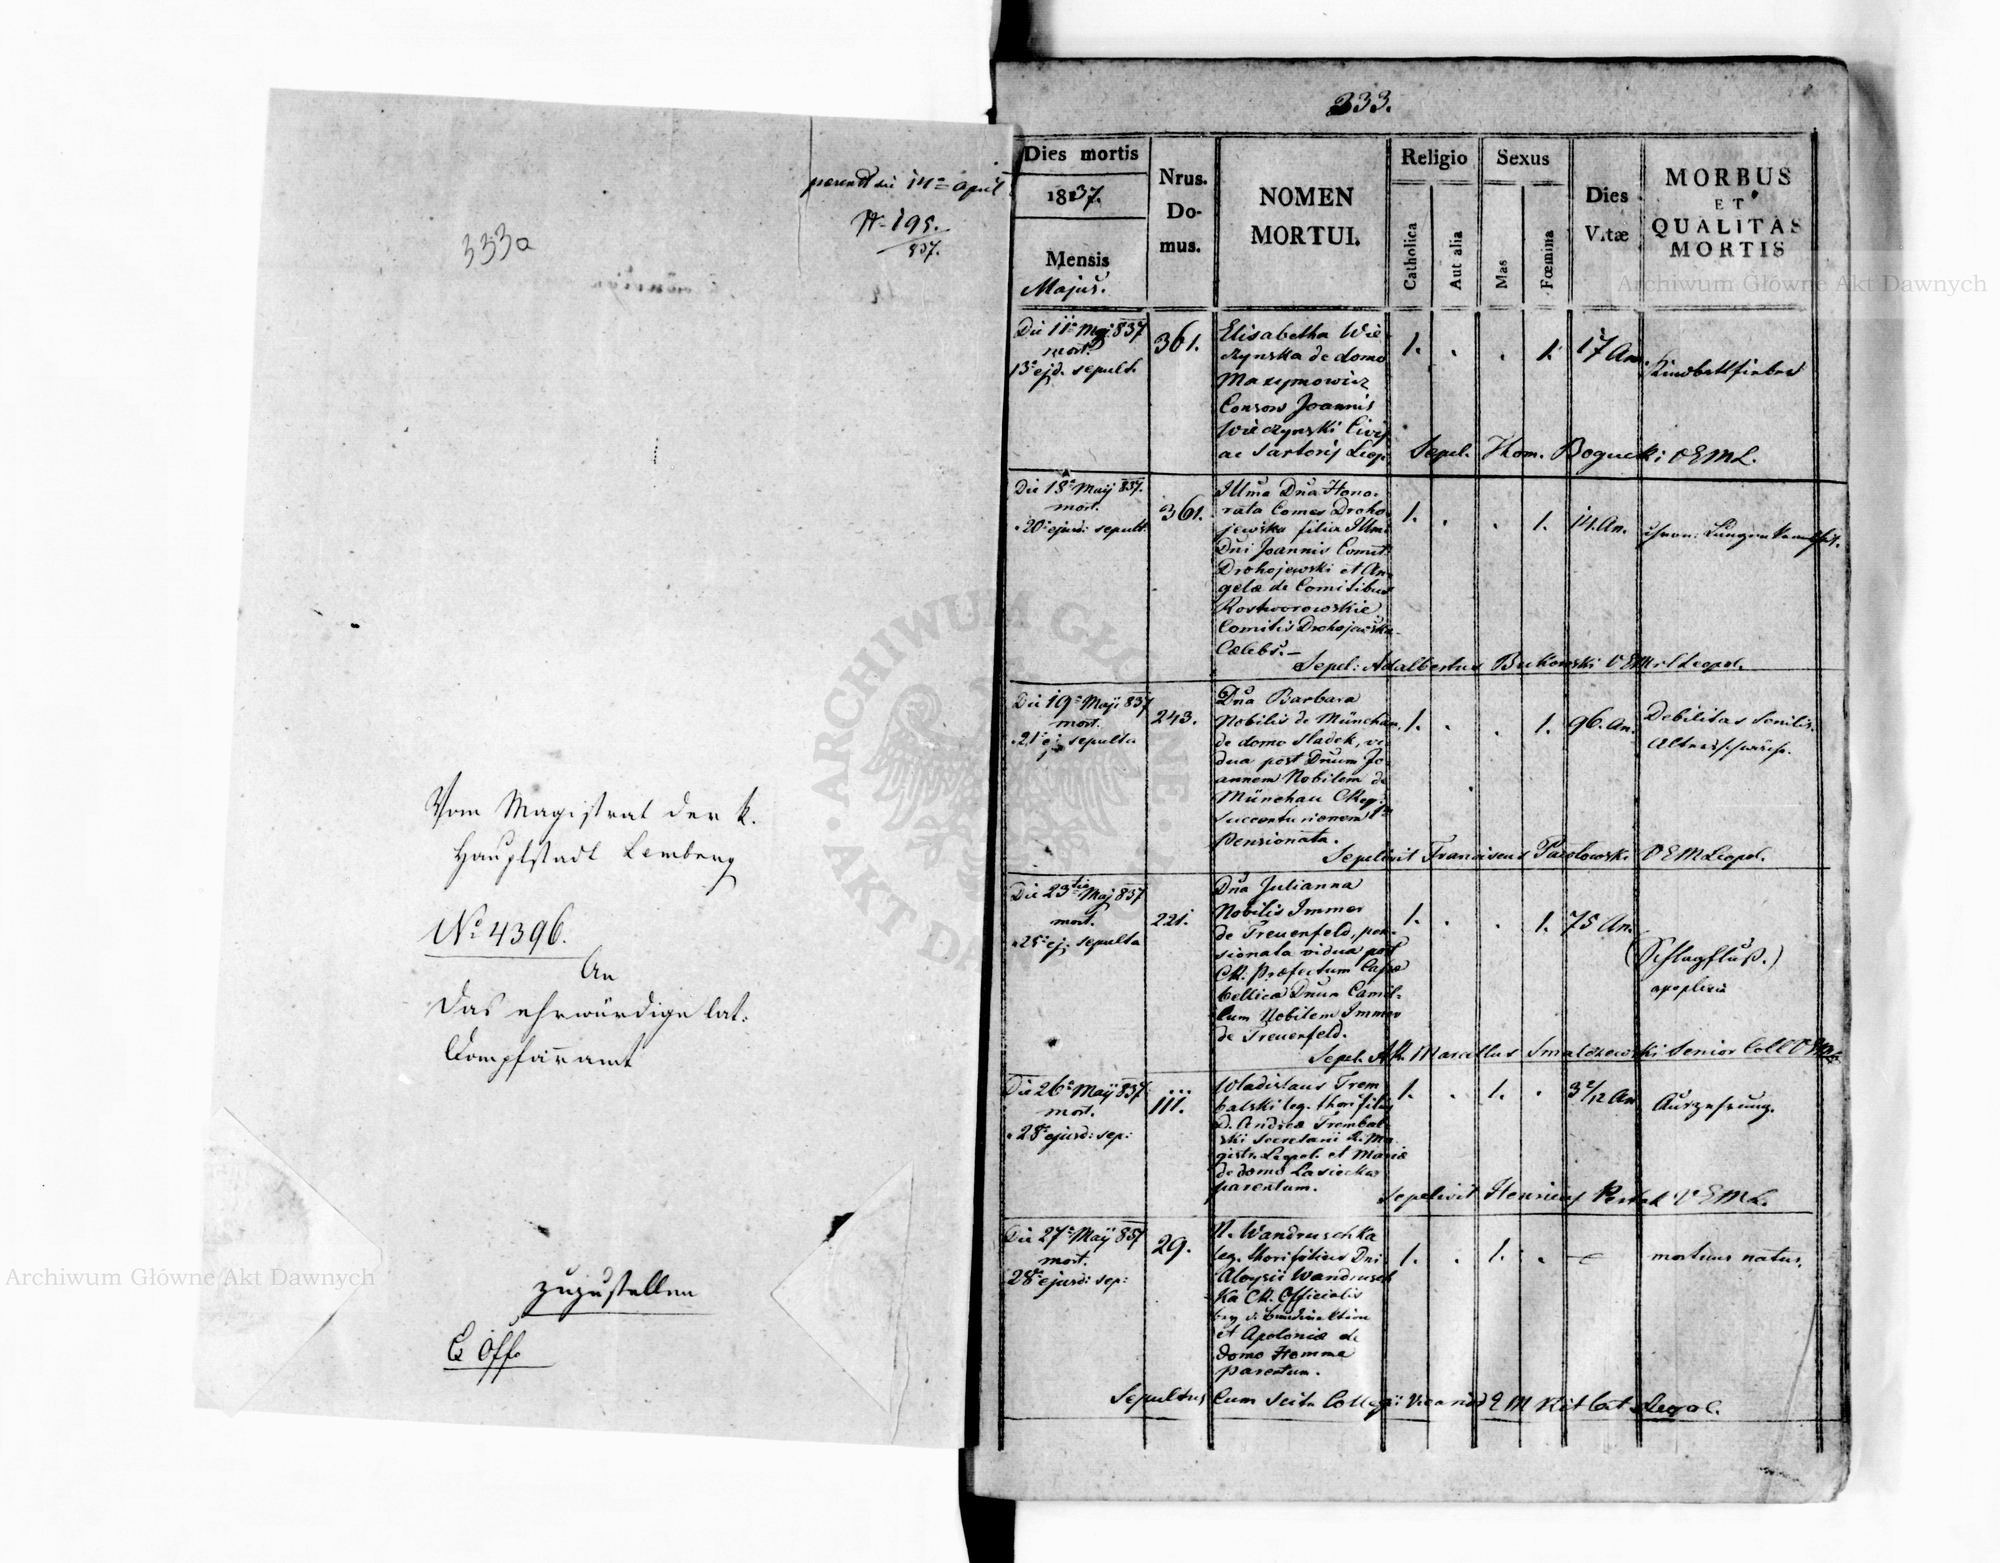 praesent die 14ta April
N. 195.
837.
333a
Vom Magistrat der k.
Hauptstadt Lemberg
No. 4396.
An
Das ehrwürdige lat:
Dompfarramt
zuzustellen
Ex Offo
333.
Dies mortis
1837.
Mensis
Majus.
Nrus.
Do-
mus.
NOMEN
MORTUI.
Religio
Catholica
Aut alia
Sexus
Mas
Fœmina
Dies
Vitæ
MORBUS
ET
QUALITAS
MORTIS
Die 11a Maj. 837
mort.
13a ejd. sepult.
361.
Elisabetha Wie-
czynska de domo
Maxymowicz
Consors Joannis
Wieczynski Civis
ac Sartoris Leop.
1. . . 1.
17 An.
Kindbettfieber
Sepel. Thom. Bogucki VEML.
Die 18a Maij 837.
mort.
20a ejusd: sepult.
361.
Illma Dna Hono-
rata Comes Droho-
jewska filia Illmi
Dni Joannis Comit.
Drohojewski et An-
gelæ de Comitibus
Rostworowskie
Comitis Drohojewska
Cælebs. —
1. . . 1.
14 An.
chron: Lungenkrankheit.
Sepel: Adalbertus Bukowski VEM rl Leopol.
Die 19a Maji 837
mort.
21a ej: sepulta
243.
Dna Barbara
Nobilis de Münchau,
de domo Sladek, vi-
dua post Dnum Jo-
annem Nobilem de
Münchau CReg:
Succenturionem
Pensionata.
1. . . 1.
96. An.
Debilitas Senilis.
Altersschwäche.
Sepelivit Franciscus Pawlowski VEMLeopol.
Die 23tia Maj 837
mort.
25a ej: sepulta
221.
Dna Julianna
Nobilis Immer
de Treuenfeld, pen-
sionata vidua post
CR. Præfectum Cassæ
bellicæ Dnum Camil-
lum Nobilem Immer
de Treuenfeld.
1. . . 1.
75 An.
(Schlagfluß.)
apoplexia
Sepel. AR. Marcellus Smalczewski Senior Coll V
Die 26a Maij 837
mort.
28a ejusd: sep:
111.
Wladislaus Trem-
balski leg. thori filius
D. Andreæ Trembal-
ski Secretarii R. Ma-
gistr. Leopol. et Mariæ
de domo Lasiecka
parentum.
1. . 1. .
3 2/12 An
Auszehrung.
Sepelivit Henricus VEML.
Die 27a Maij 837
mort.
28a ejusd: sep:
29.
N. Wandruschka
leg. thori filius Dni
Aloysii Wandrusch-
ka CR. Officialis
et Apoloniæ de
domo Homme
parentum.
1. . 1. . —
mortuus natus.
Sepultus Cum Scitu Collegii Vicariorum
Archiwum Główne Akt Dawnych
Archiwum Główne Akt Dawnych
ARCHIWUM GŁÓWNE · AKT DAWNYCH ·